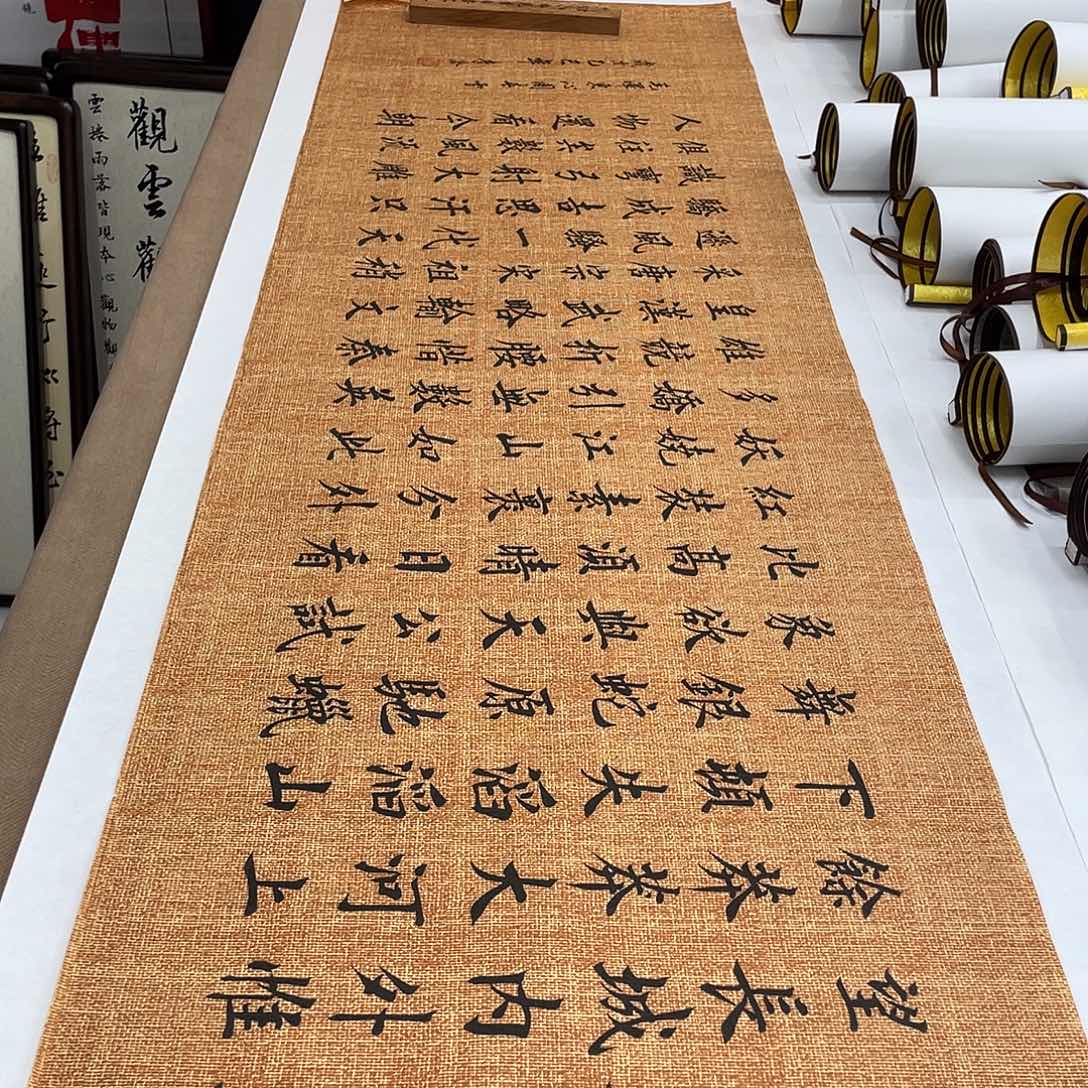 望長城內外惟
餘莽莽大河上
下頓失滔滔山
舞銀蛇原馳蠟
象欲與天公試
比高須晴日看
紅裝素裹分外
妖嬈江山如此
多嬌引無數英
雄競折腰惜秦
皇漢武略輸文
采唐宗宋祖稍
遜風騷一代天
驕成吉思汗只
識彎弓射大雕
俱往矣數風流
人物還看今朝
毛澤東沁園春雪
觀雲觀
雲捲雨落皆現本心觀物